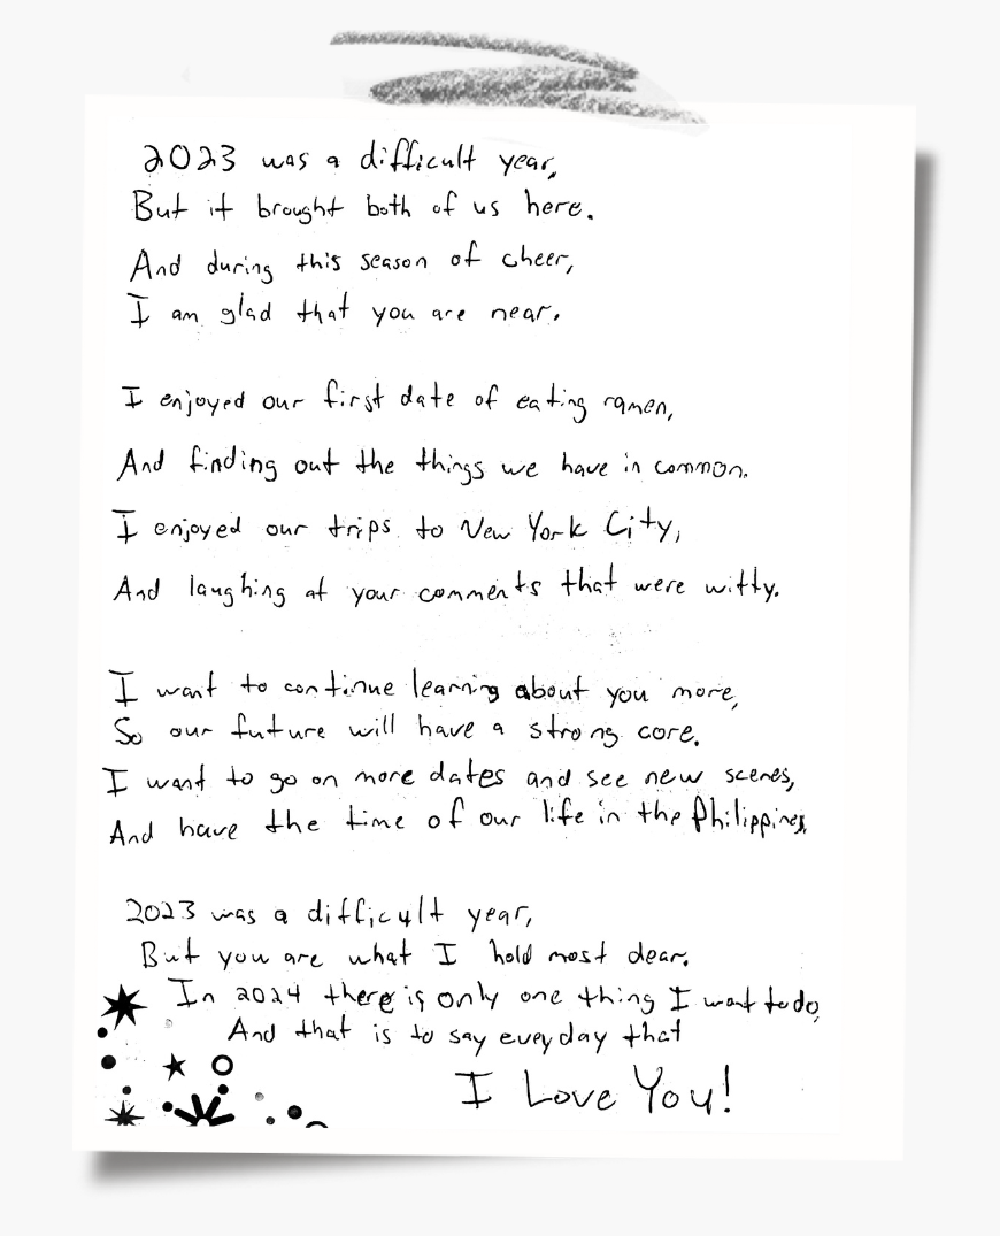 2023 was a difficult year,
But it brought both of us here.
And during this season of cheer,
I am glad that you are near.
I enjoyed our first date of eating ramen,
And finding out the things we have in common.
I enjoyed our trips to New York City,
And laughing at your comments that were witty.
I want to continue learning about you more,
So our future will have a strong core.
I want to go on more dates and see new scenes,
And have the time of our life in the Philippines.
2023 was a difficult year,
But you are what I hold most dear.
In 2024 there is only one thing I want to do,
And that is to say everyday that
I Love You!